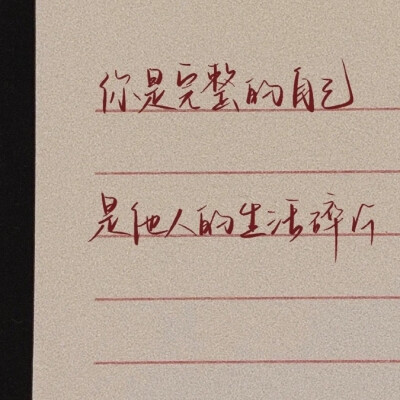 你是完整的自己
是他人的生活碎片